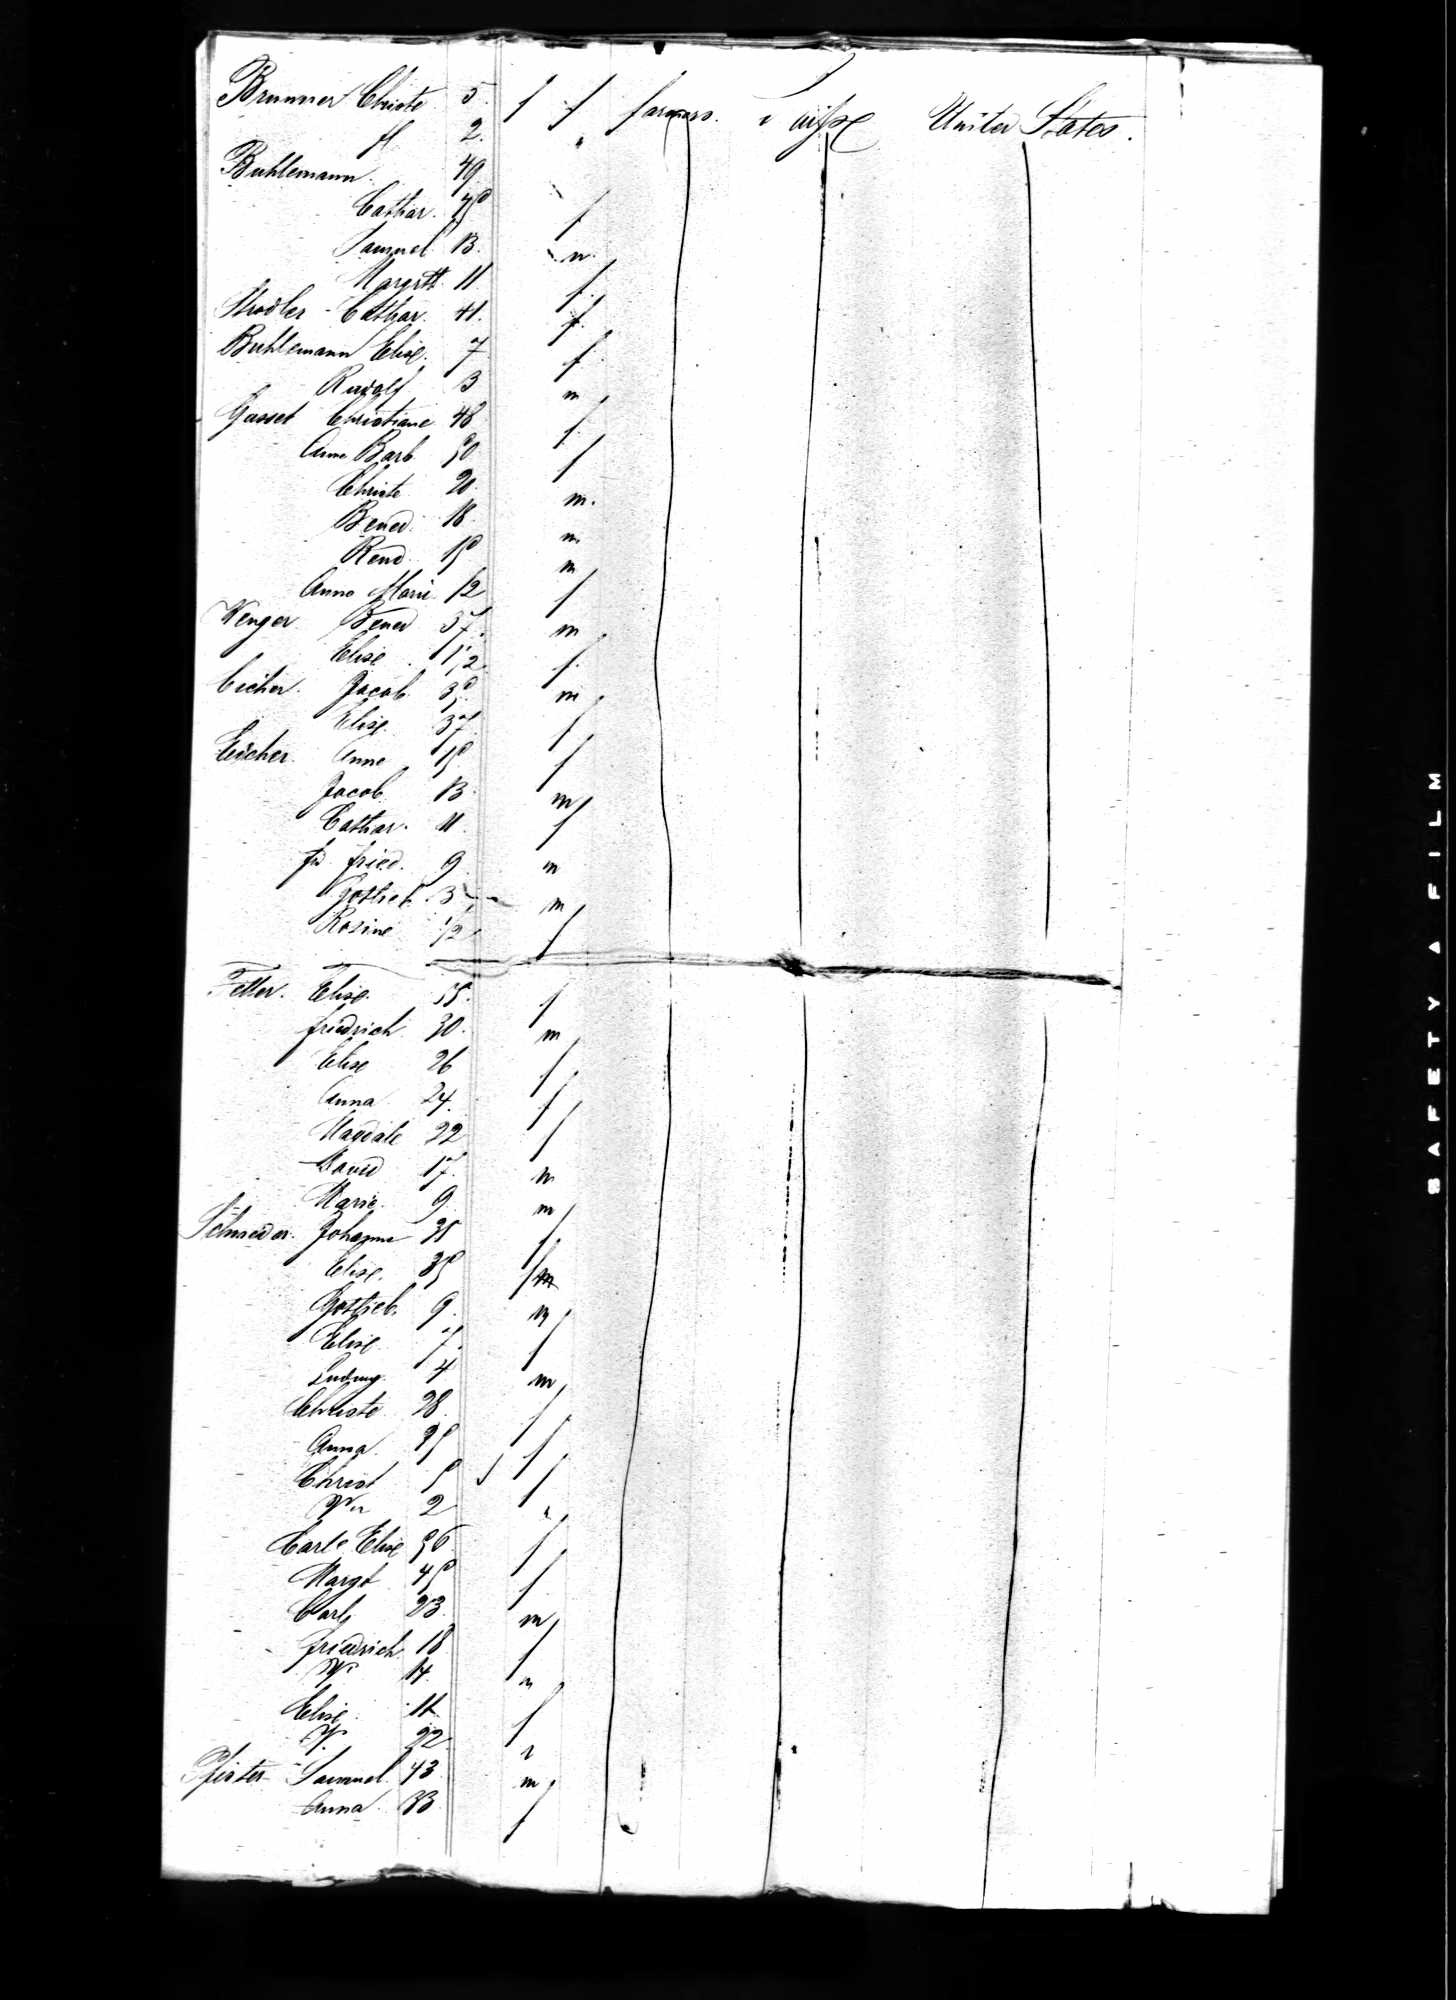 Brunner Christe 5 f f farmers. United States.
fl 2 "
Buhlemann 49
Cathar. 45 f
Samuel 13. m.
Margrth 11 f
Cathar. 41. f.
Buhlemann Elise. 7 f
Rudolf 3 m
Gasset Christiane 48 f
Anna Barb. 50 f
Christe 20. m.
Bened. 18 m
Bend 15 m
Anna Marie 12 f
Wenger Bened 57. m
Elise 1/2 f.
Eicher. Jacob 35 m
Elise. 37 f
Eicher. Anna 15 f
Jacob 13 m
Cathar. 11. f
fried. 9 m
Gottlieb 3 m
Rosine 1/2 f
Feller. Elise. 55. f
friedrich 30. m
Elise 26 f
Anna 24. f
Magdale 22 f
David 17. m
Marie. 9 m
Schneider. Johanne 35 f
Elise. 35 f
Gottlieb. 9. m
Elise 7. f
Ludwig. 4 m
Christe 28. f
Anna. 25 f
Christ 5 f
2 "
Carl Elise 56 f
Margt 45 f
Carl 23 m
friedrich 18 f
14. m
Elise 11 f
22
Pfister Samuel. 43 m
Anna. 33 f
SAFETY A FILM